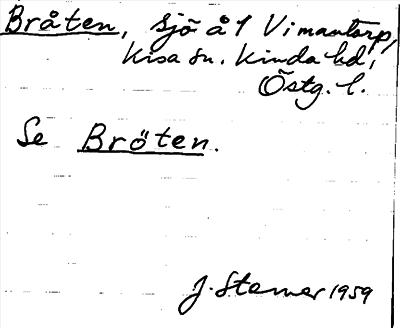 Bråten, sjö å 1 Vimantorp,
Kisa sn. Kinda hd,
Östg. l.
Se Bröten.
J. Sterner 1959